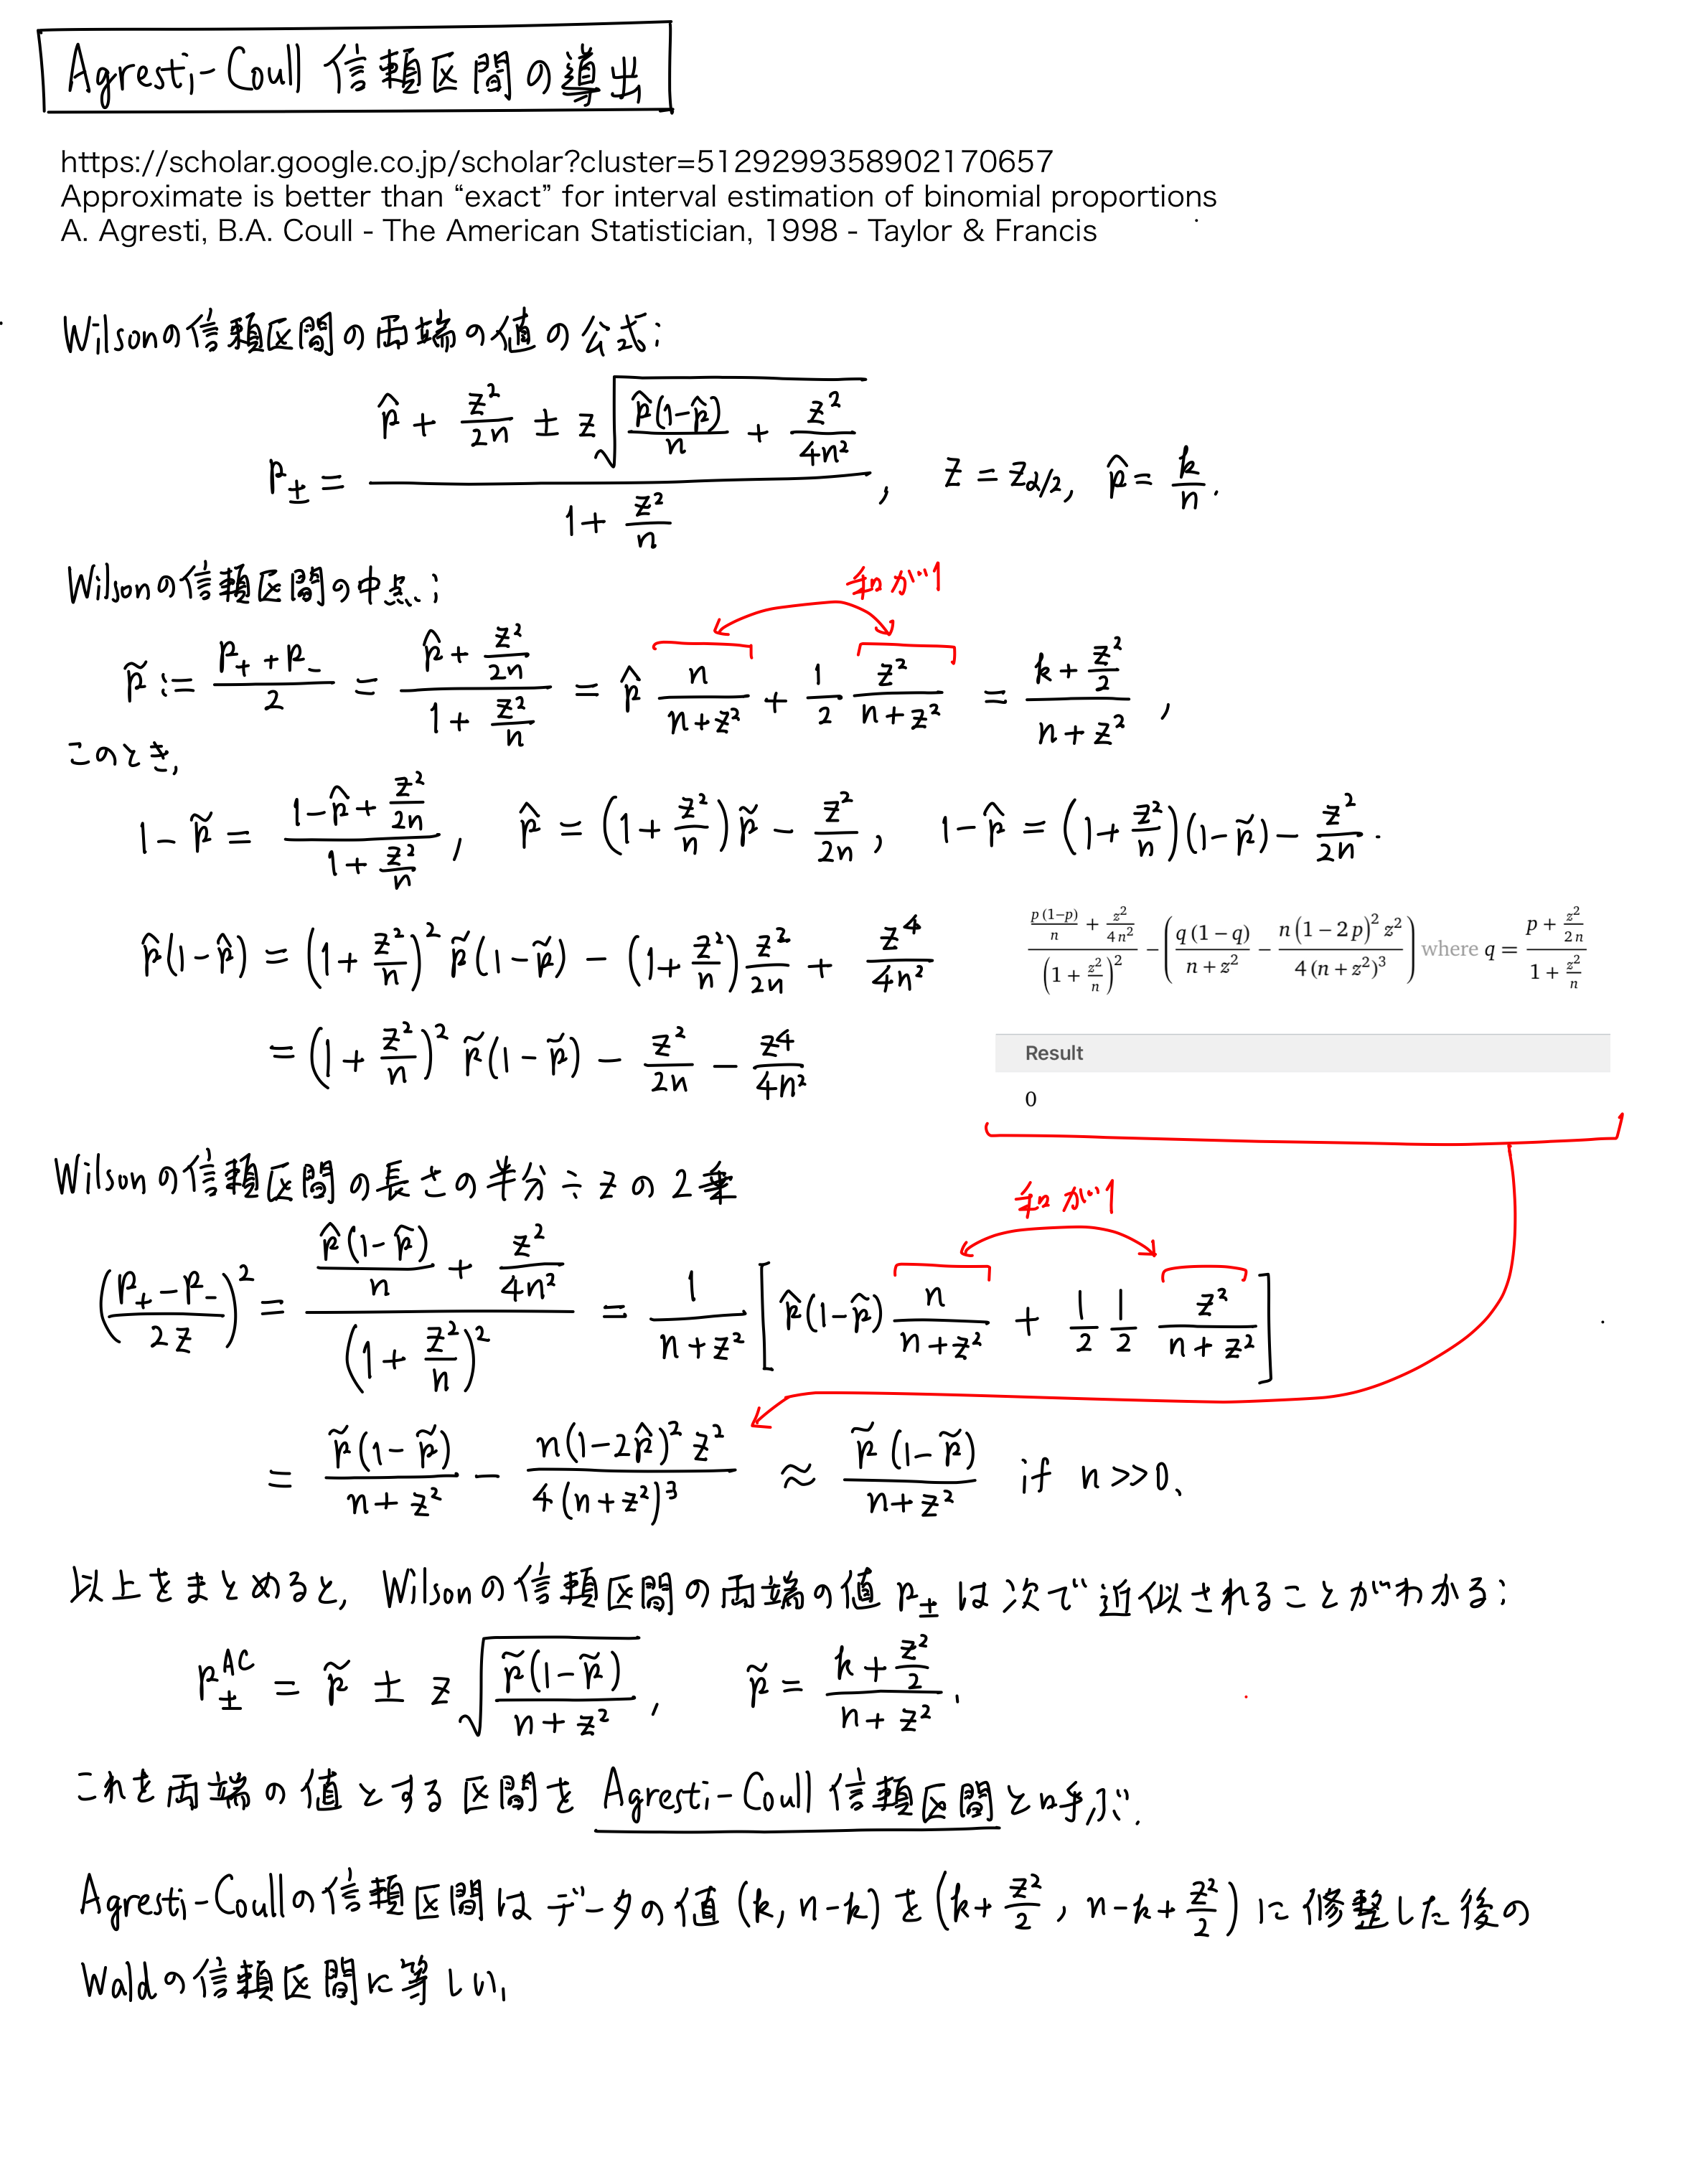 Agresti-Coull 信頼区間の導出
https://scholar.google.co.jp/scholar?cluster=5129299358902170657
Approximate is better than “exact” for interval estimation of binomial proportions
A. Agresti, B.A. Coull - The American Statistician, 1998 - Taylor & Francis
Wilsonの信頼区間の両端の値の公式:
p_± = (p̂ + z²/(2n) ± z√(p̂(1-p̂)/n + z²/(4n²))) / (1 + z²/n), z = z_{α/2}, p̂ = k/n.
Wilsonの信頼区間の中点:
和が1
p̃ := (p_+ + p_-)/2 = (p̂ + z²/(2n)) / (1 + z²/n) = p̂ n/(n+z²) + 1/2 z²/(n+z²) = (k + z²/2)/(n+z²),
このとき,
1-p̃ = (1-p̂ + z²/(2n)) / (1 + z²/n), p̂ = (1 + z²/n)p̃ - z²/(2n), 1-p̂ = (1 + z²/n)(1-p̃) - z²/(2n).
p̂(1-p̂) = (1 + z²/n)² p̃(1-p̃) - (1 + z²/n) z²/(2n) + z⁴/(4n²)
= (1 + z²/n)² p̃(1-p̃) - z²/(2n) - z⁴/(4n²)
(p(1-p)/n + z²/(4n²)) / (1 + z²/n)² - (q(1-q)/(n+z²) - n(1-2p)² z²/(4(n+z²)³)) where q = (p + z²/(2n)) / (1 + z²/n)
Result
0
Wilsonの信頼区間の長さの半分÷zの2乗
和が1
((p_+ - p_-)/(2z))² = (p̂(1-p̂)/n + z²/(4n²)) / (1 + z²/n)² = 1/(n+z²) [p̂(1-p̂) n/(n+z²) + 1/2 1/2 z²/(n+z²)]
= p̃(1-p̃)/(n+z²) - n(1-2p̂)² z²/(4(n+z²)³) ≈ p̃(1-p̃)/(n+z²) if n>>0.
以上をまとめると, Wilsonの信頼区間の両端の値 p_± は次で近似されることがわかる:
p_±^{AC} = p̃ ± z√(p̃(1-p̃)/(n+z²)), p̃ = (k + z²/2)/(n+z²).
これを両端の値とする区間を Agresti-Coull 信頼区間と呼ぶ.
Agresti-Coullの信頼区間はデータの値 (k, n-k) を (k + z²/2, n-k + z²/2) に修整した後の
Waldの信頼区間に等しい.